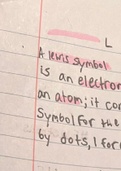 L
A lewis symbol
is an electron
an atom; it con
symbol for the
by dots, 1 for